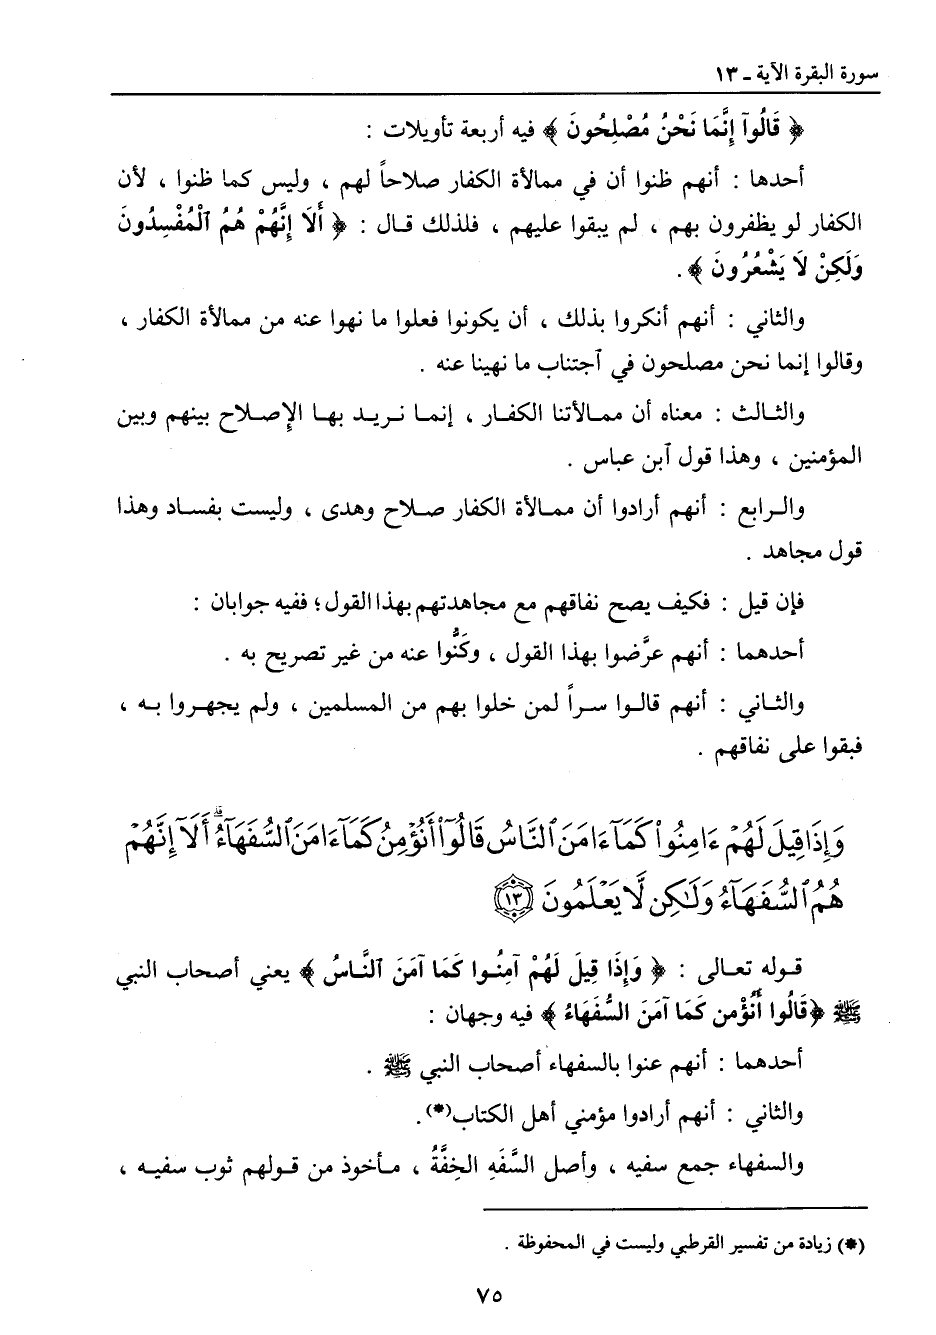 سورة البقرة الآية ـ ١٣
﴿ قَالُوٓا إِنَّمَا نَحْنُ مُصْلِحُونَ ﴾ فيه أربعة تأويلات :
أحدها : أنهم ظنوا أن في ممالأة الكفار صلاحاً لهم ، وليس كما ظنوا ، لأن
الكفار لو يظفرون بهم ، لم يبقوا عليهم ، فلذلك قال : ﴿ أَلَا إِنَّهُمْ هُمُ ٱلْمُفْسِدُونَ
وَلَكِنْ لَا يَشْعُرُونَ ﴾ .
والثاني : أنهم أنكروا بذلك ، أن يكونوا فعلوا ما نهوا عنه من ممالأة الكفار ،
وقالوا إنما نحن مصلحون في ٱجتناب ما نهينا عنه .
والثالث : معناه أن ممالأتنا الكفار ، إنما نريد بها الإصلاح بينهم وبين
المؤمنين ، وهذا قول ٱبن عباس .
والرابع : أنهم أرادوا أن ممالأة الكفار صلاح وهدى ، وليست بفساد وهذا
قول مجاهد .
فإن قيل : فكيف يصح نفاقهم مع مجاهدتهم بهذا القول ؛ ففيه جوابان :
أحدهما : أنهم عرَّضوا بهذا القول ، وكَنُّوا عنه من غير تصريح به .
والثاني : أنهم قالوا سراً لمن خلوا بهم من المسلمين ، ولم يجهروا به ،
فبقوا على نفاقهم .
وَإِذَا قِيلَ لَهُمْ ءَامِنُوا۟ كَمَآ ءَامَنَ ٱلنَّاسُ قَالُوٓا۟ أَنُؤْمِنُ كَمَآ ءَامَنَ ٱلسُّفَهَآءُ ۗ أَلَآ إِنَّهُمْ
هُمُ ٱلسُّفَهَآءُ وَلَـٰكِن لَّا يَعْلَمُونَ ﴿١٣﴾
قوله تعالى : ﴿ وَإِذَا قِيلَ لَهُمْ آمِنُوا كَمَا آمَنَ ٱلنَّاسُ ﴾ يعني أصحاب النبي
ﷺ ﴿ قَالُوا أَنُؤْمن كَمَا آمَنَ السُّفَهَاءُ ﴾ فيه وجهان :
أحدهما : أنهم عنوا بالسفهاء أصحاب النبي ﷺ .
والثاني : أنهم أرادوا مؤمني أهل الكتاب(*) .
والسفهاء جمع سفيه ، وأصل السَّفَهِ الخِفَّةُ ، مأخوذ من قولهم ثوب سفيه ،
(*) زيادة من تفسير القرطبي وليست في المحفوظة .
٧٥